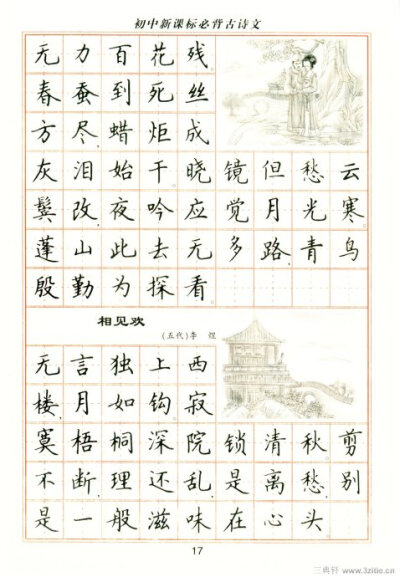 初中新课标必背古诗文
无力百花残
春蚕到死丝
方尽蜡炬成
灰泪始干晓镜但愁云
鬓改夜吟应觉月光寒
蓬山此去无多路青鸟
殷勤为探看
相见欢
(五代)李煜
无言独上西
楼月如钩寂
寞梧桐深院锁清秋剪
不断理还乱是离愁别
是一般滋味在心头
17
三典轩 www.3zitie.cn